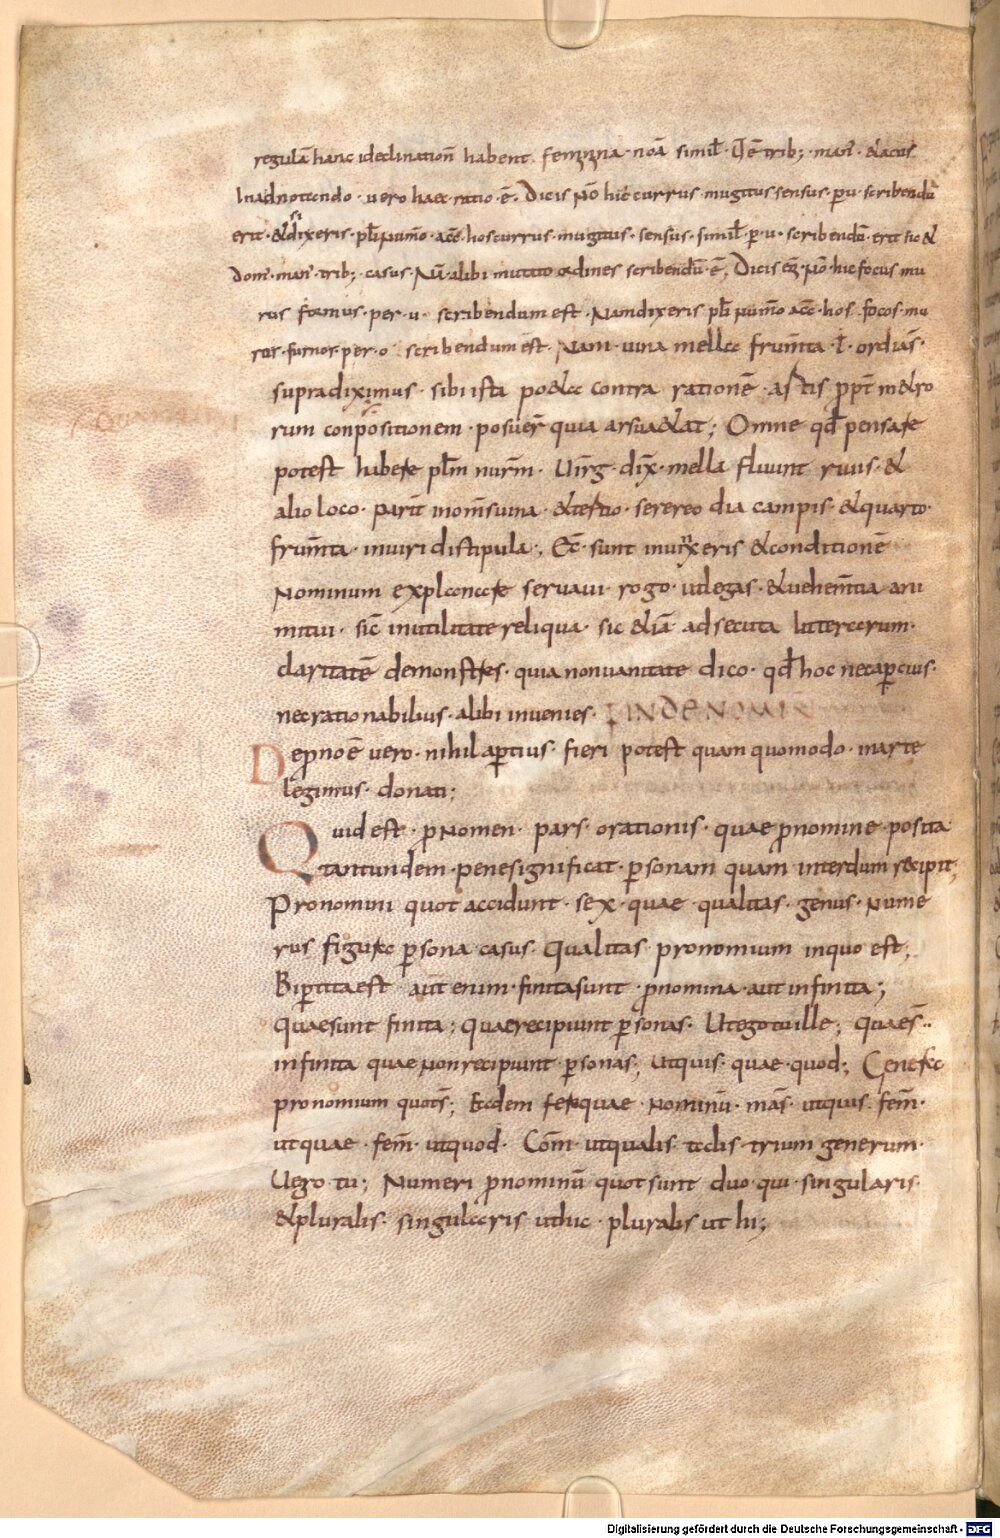 regulā hanc ideclinationē habent feminina noā simił · Ī ē trib; · man̄ · & acus
In adnotando · uero haec · ratio · ē · Dicis nō hic currus · mugitus sensus · p u · scribendū
erit · & si dixeris · płi numō · acc̄ · hos currus · mugitus · sensus · simił · p · u · scribendū · erit sic &
dom̄ · man̄ · trib; · casus · Nā alibi mutato ordines scribendū · ē; Dicis · nō · hic focus mu
rus furnus · per · u · scribendum est · Nam dixeris płi numō acc̄ · hos · focos · mu
ros · furnos · per · o · scribendum est · Nam · uina mella frum̄ta · ł · ordia
supra diximus · sibi ista po&ae contra rationē · astis ppt̄ m&ro
rum conpositionem · posuer̄ quia arsuad&at; Omne qđ pensare
potest habere płm num̄ · Uirg · dix̄ · mella fluunt riuis · &
alio loco · sere · campis · & quarto ·
frum̄ta · in uiridi stipula; sunt & conditionē
Nominum explanare seruaui · rogo · ut legas · & uehem̄tia ani
mi tui · sic̄ inutilitate reliqua · sic & iā adsecuta litterarum ·
claritatē demonstres · quia non uanitate dico · qđ hoc nec apcius ·
nec rationabilius · alibi inuenies · FIN DE NOMIN
De pnoē uero · nihil aptius · fieri potest quam quomodo · in arte
legimus · donati;
Quid est · pNomen · pars · orationis · quae pnomine · posita
tantundem · pene significat · psonam quam interdum recipit;
Pronomini quot accidunt · sex · quae · qualitas · genus · Nume
rus figura psona · casus · Qualitas pronominum in quo est;
Bipertita est aut enim · finita sunt · pnomina · aut infinita;
quae sunt finita; quae recipiunt psonas · Ut ego tu ille; quae s̄ ·
infinita quae non recipiunt · psonas; Ut quis · quae · quod; Genera
pronominum quot s̄; Eadem fere quae · Nominū · mas̄ · ut quis · fem̄ ·
ut quae · fem̄ · ut quod · Com̄ · ut qualis talis · trium generum ·
Ut ego tu; Numeri pnominū quot sunt duo qui · singularis
& pluralis · singularis ut hic · pluralis ut hi;
Digitalisierung gefördert durch die Deutsche Forschungsgemeinschaft - DFG